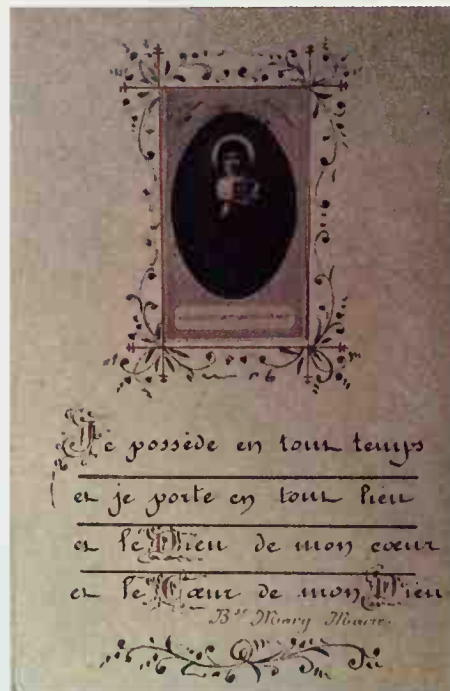 Je possède en tout temps
et je porte en tout lieu
et le Dieu de mon cœur
et le Cœur de mon Dieu
Bse Marg Marie.